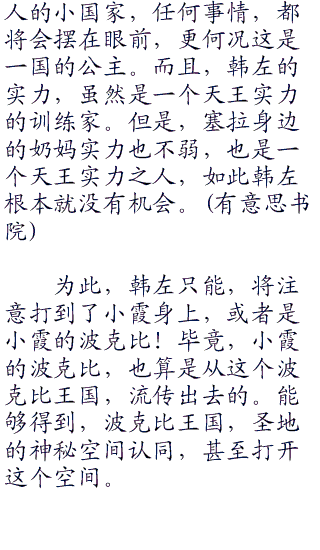 人的小国家，任何事情，都
将会摆在眼前，更何况这是
一国的公主。而且，韩左的
实力，虽然是一个天王实力
的训练家。但是，塞拉身边
的奶妈实力也不弱，也是一
个天王实力之人，如此韩左
根本就没有机会。(有意思书
院)
为此，韩左只能，将注
意打到了小霞身上，或者是
小霞的波克比！毕竟，小霞
的波克比，也算是从这个波
克比王国，流传出去的。能
够得到，波克比王国，圣地
的神秘空间认同，甚至打开
这个空间。